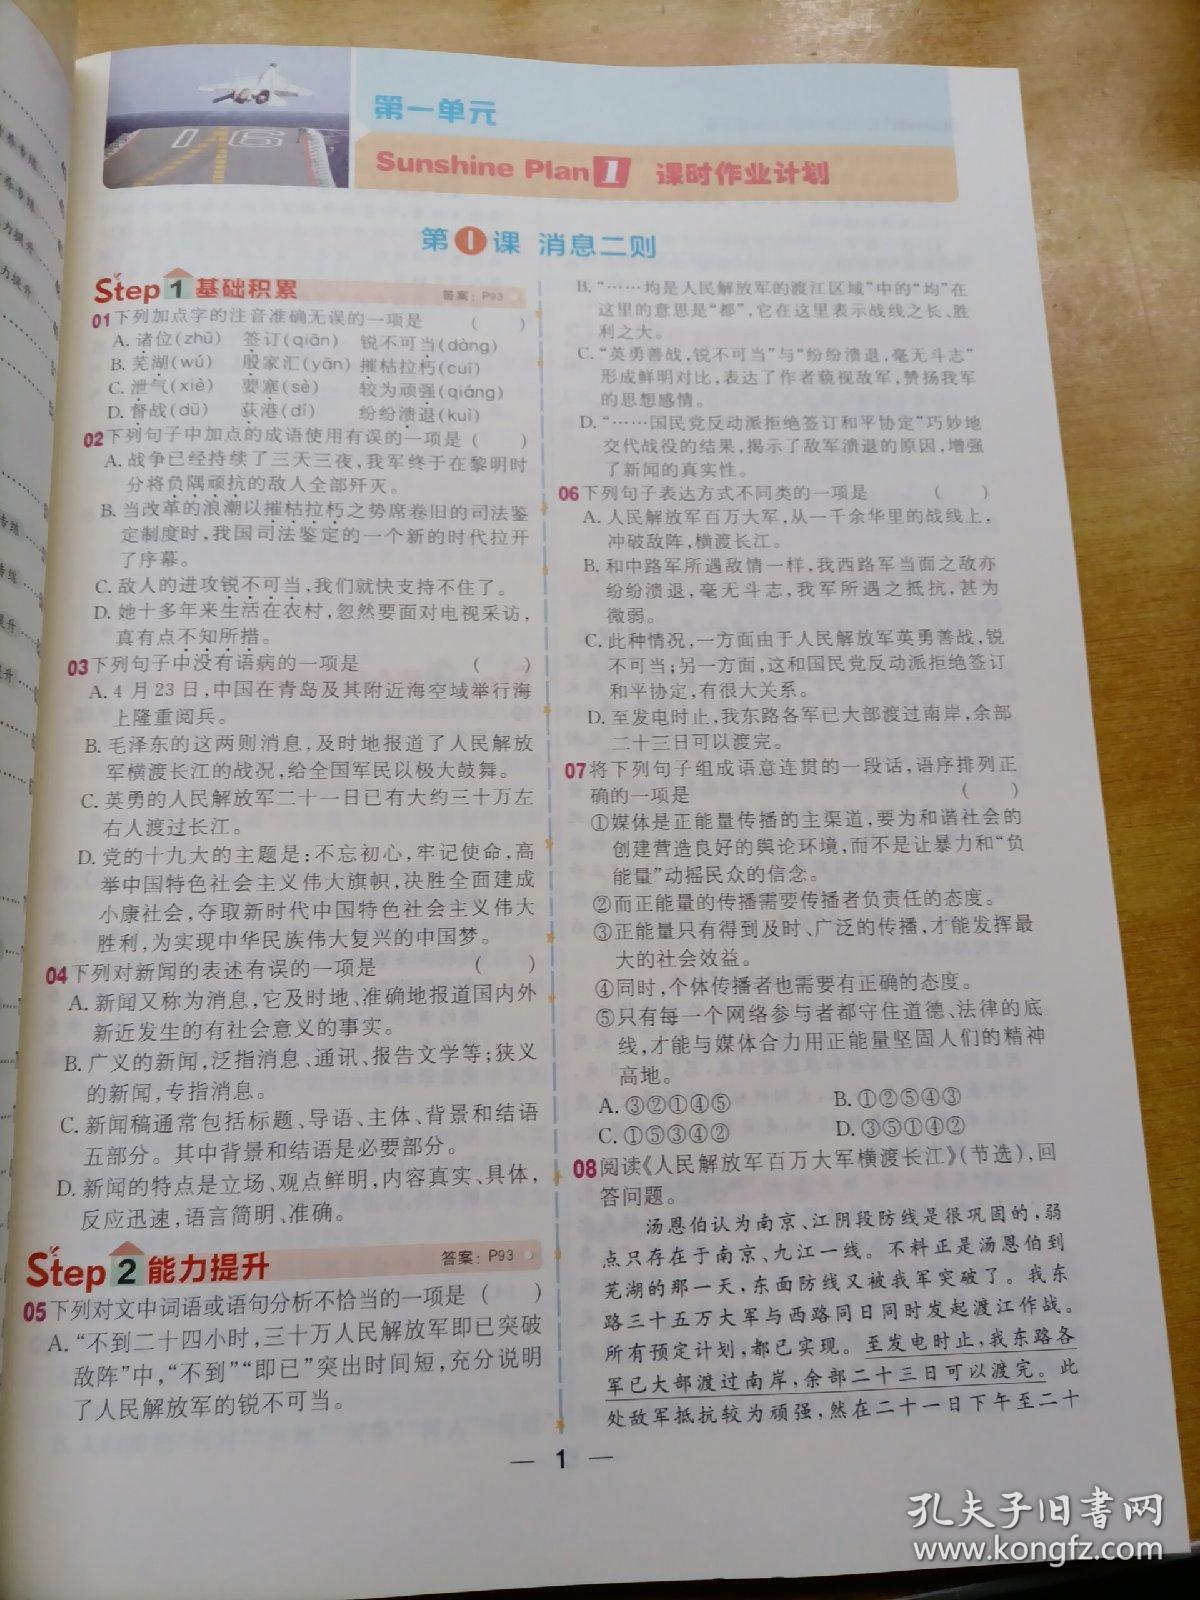 第一单元
Sunshine Plan 1 课时作业计划
第1课 消息二则
Step 1 基础积累 答案：P93
01下列加点字的注音准确无误的一项是 ( )
A. 诸位(zhū) 签订(qiān) 锐不可当(dàng)
B. 芜湖(wú) 殷家汇(yān) 摧枯拉朽(cuī)
C. 泄气(xiè) 要塞(sè) 较为顽强(qiáng)
D. 督战(dū) 荻港(dí) 纷纷溃退(kuì)
02下列句子中加点的成语使用有误的一项是( )
A. 战争已经持续了三天三夜,我军终于在黎明时
分将负隅顽抗的敌人全部歼灭。
B. 当改革的浪潮以摧枯拉朽之势席卷旧的司法鉴
定制度时,我国司法鉴定的一个新的时代拉开
了序幕。
C. 敌人的进攻锐不可当,我们就快支持不住了。
D. 她十多年来生活在农村,忽然要面对电视采访,
真有点不知所措。
03下列句子中没有语病的一项是 ( )
A. 4月23日,中国在青岛及其附近海空域举行海
上隆重阅兵。
B. 毛泽东的这两则消息,及时地报道了人民解放
军横渡长江的战况,给全国军民以极大鼓舞。
C. 英勇的人民解放军二十一日已有大约三十万左
右人渡过长江。
D. 党的十九大的主题是:不忘初心,牢记使命,高
举中国特色社会主义伟大旗帜,决胜全面建成
小康社会,夺取新时代中国特色社会主义伟大
胜利,为实现中华民族伟大复兴的中国梦。
04下列对新闻的表述有误的一项是 ( )
A. 新闻又称为消息,它及时地、准确地报道国内外
新近发生的有社会意义的事实。
B. 广义的新闻,泛指消息、通讯、报告文学等;狭义
的新闻,专指消息。
C. 新闻稿通常包括标题、导语、主体、背景和结语
五部分。其中背景和结语是必要部分。
D. 新闻的特点是立场、观点鲜明,内容真实、具体,
反应迅速,语言简明、准确。
Step 2 能力提升 答案：P93
05下列对文中词语或语句分析不恰当的一项是( )
A. “不到二十四小时,三十万人民解放军即已突破
敌阵”中,“不到”“即已”突出时间短,充分说明
了人民解放军的锐不可当。
B. “……均是人民解放军的渡江区域”中的“均”在
这里的意思是“都”,它在这里表示战线之长、胜
利之大。
C. “英勇善战,锐不可当”与“纷纷溃退,毫无斗志”
形成鲜明对比,表达了作者藐视敌军,赞扬我军
的思想感情。
D. “……国民党反动派拒绝签订和平协定”巧妙地
交代战役的结果,揭示了敌军溃退的原因,增强
了新闻的真实性。
06下列句子表达方式不同类的一项是 ( )
A. 人民解放军百万大军,从一千余华里的战线上,
冲破敌阵,横渡长江。
B. 和中路军所遇敌情一样,我西路军当面之敌亦
纷纷溃退,毫无斗志,我军所遇之抵抗,甚为
微弱。
C. 此种情况,一方面由于人民解放军英勇善战,锐
不可当;另一方面,这和国民党反动派拒绝签订
和平协定,有很大关系。
D. 至发电时止,我东路各军已大部渡过南岸,余部
二十三日可以渡完。
07将下列句子组成语意连贯的一段话,语序排列正
确的一项是 ( )
①媒体是正能量传播的主渠道,要为和谐社会的
创建营造良好的舆论环境,而不是让暴力和“负
能量”动摇民众的信念。
②而正能量的传播需要传播者负责任的态度。
③正能量只有得到及时、广泛的传播,才能发挥最
大的社会效益。
④同时,个体传播者也需要有正确的态度。
⑤只有每一个网络参与者都守住道德、法律的底
线,才能与媒体合力用正能量坚固人们的精神
高地。
A. ③②①④⑤ B. ①②⑤④③
C. ①⑤③④② D. ③⑤①④②
08阅读《人民解放军百万大军横渡长江》(节选),回
答问题。
汤恩伯认为南京、江阴段防线是很巩固的,弱
点只存在于南京、九江一线。不料正是汤恩伯到
芜湖的那一天,东面防线又被我军突破了。我东
路三十五万大军与西路同日同时发起渡江作战。
所有预定计划,都已实现。至发电时止,我东路各
军已大部渡过南岸,余部二十三日可以渡完。此
处敌军抵抗较为顽强,然在二十一日下午至二十
— 1 —
孔夫子旧书网
www.kongfz.com